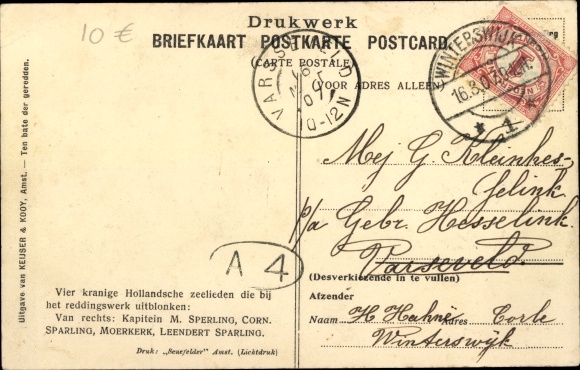 10 €
Drukwerk
BRIEFKAART POSTKARTE POSTCARD.
(CARTE POSTALE)
(VOOR ADRES ALLEEN)
VARSSEVELD
10-12N
WINTERSWIJK
1
Mej G Kleinhes-
selink
p/a Gebr. Hesselink
Varseveld.
(Desverkiezende in te vullen)
Afzender
Naam H. Hahné Adres Corle
Winterswijk
A 4
Vier kranige Hollandsche zeelieden die bij
het reddingswerk uitblonken:
Van rechts: Kapitein M. SPERLING, CORN.
SPARLING, MOERKERK, LEENDERT SPARLING.
Druk: „Senefelder" Amst. (Lichtdruk)
Uitgave van KEIJSER & KOOY, Amst. — Ten bate der geredden.